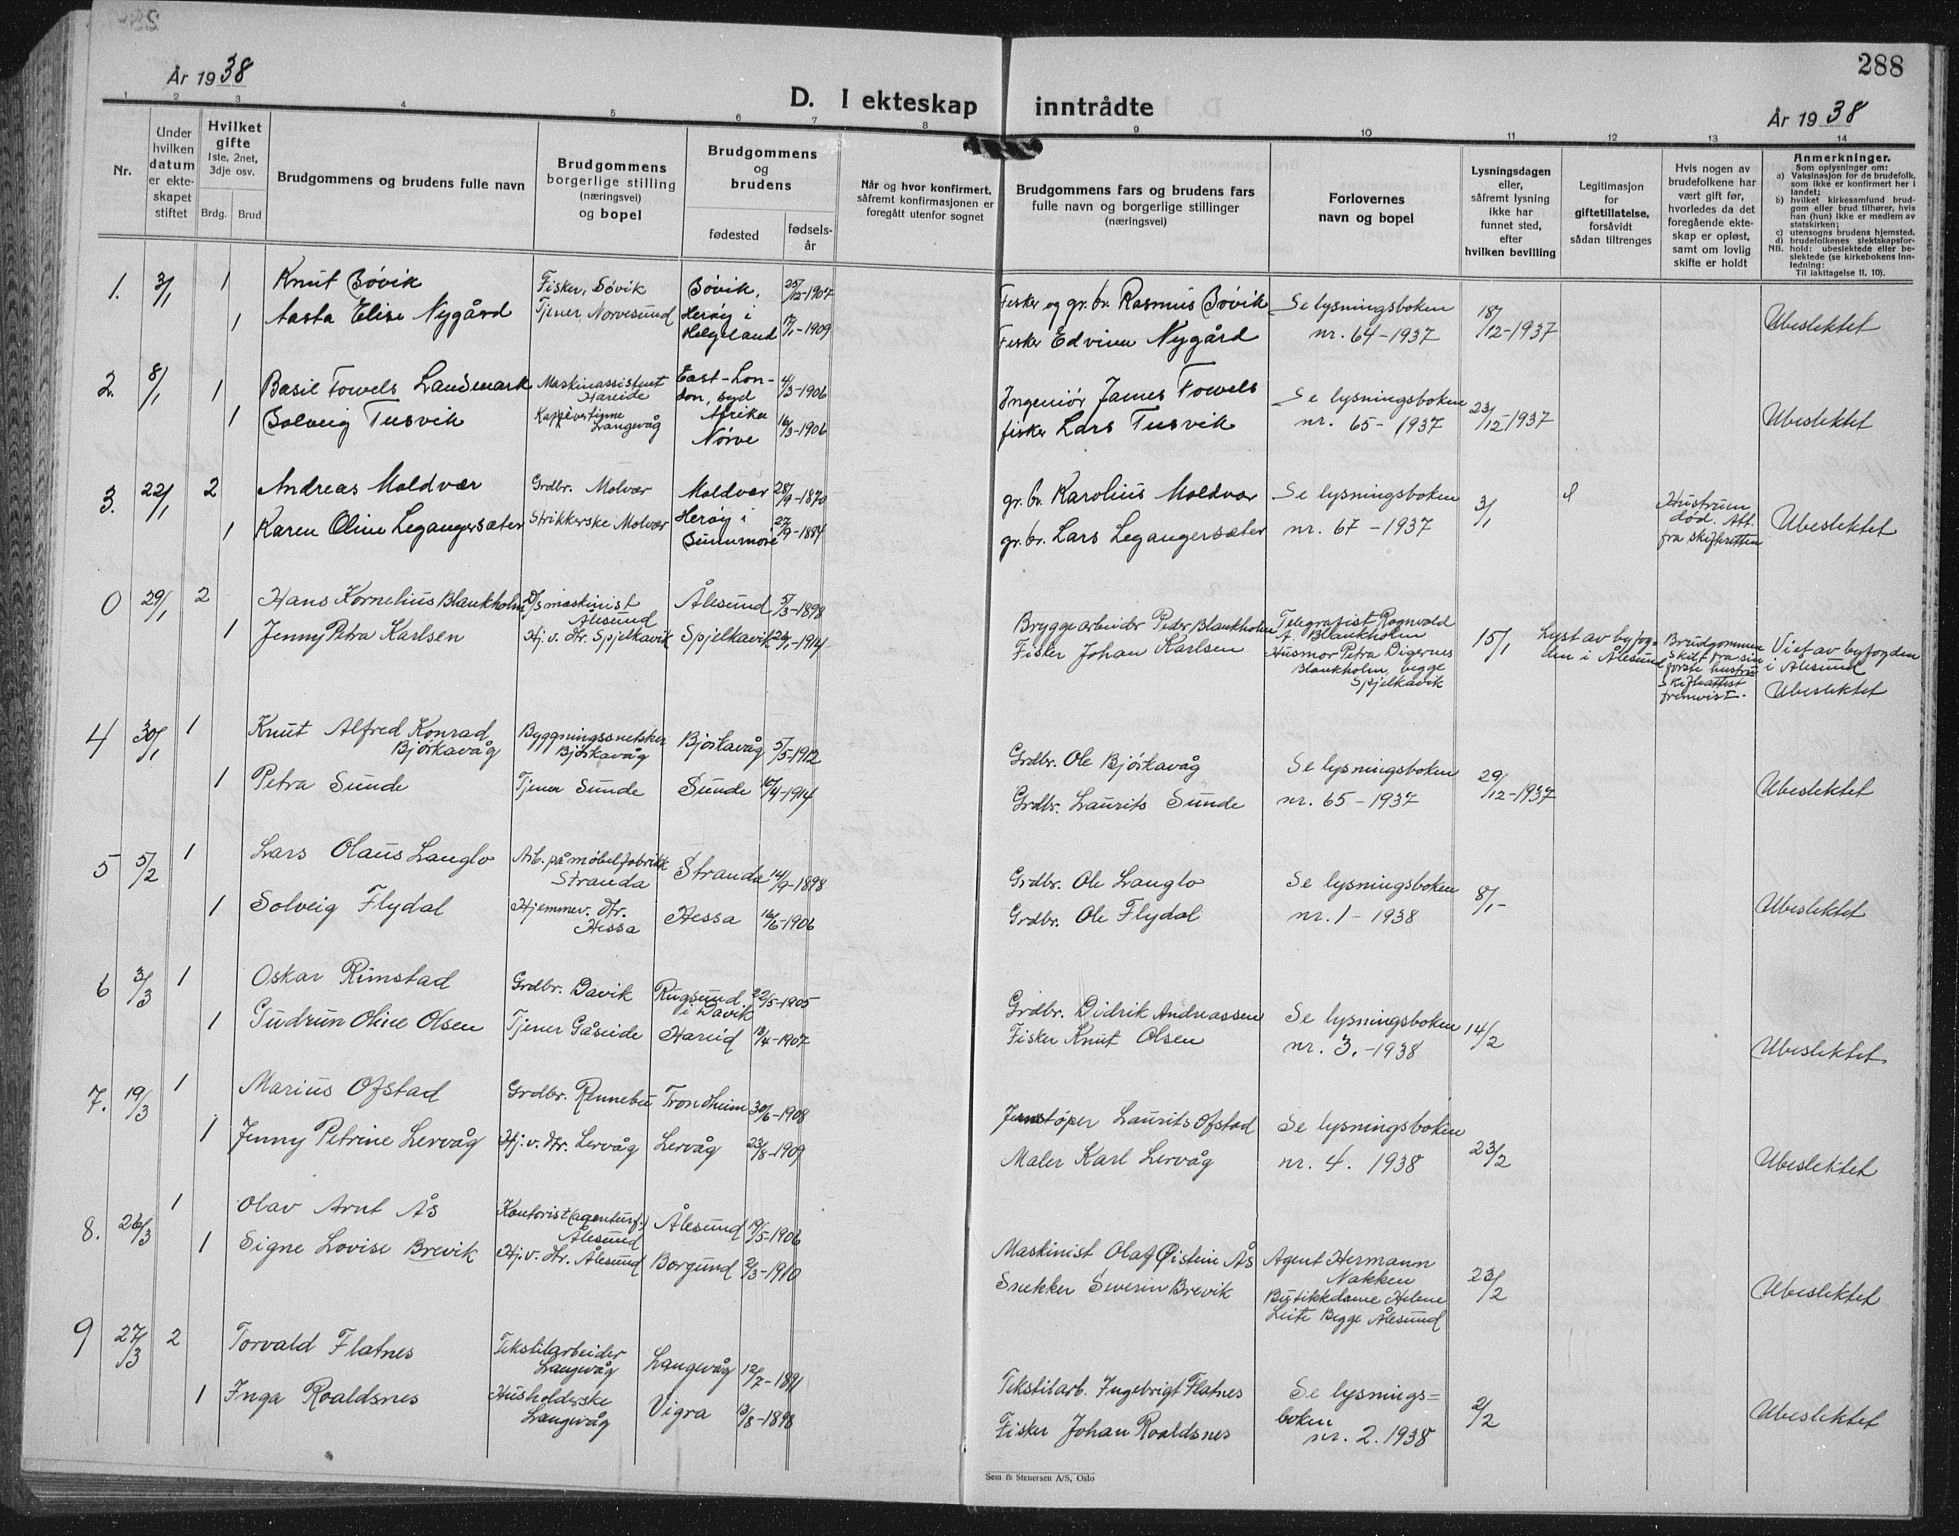 288
År 1938
D. I ekteskap inntrådte
År 1938
1 2 3 4 5 6 7 8 9 10 11 12 13 14
Nr.
Under hvilken datum er ekteskapet stiftet
Hvilket gifte
1ste, 2net, 3dje osv.
Brdg. Brud
Brudgommens og brudens fulle navn
Brudgommens borgerlige stilling (næringsvei) og bopel
Brudgommens og brudens
fødested
fødselsår
Når og hvor konfirmert, såfremt konfirmasjonen er foregått utenfor sognet
Brudgommens fars og brudens fars fulle navn og borgerlige stillinger (næringsvei)
Forlovernes navn og bopel
Lysningsdagen eller, såfremt lysning ikke har funnet sted, efter hvilken bevilling
Legitimasjon for giftetillatelse, forsåvidt sådan tiltrenges
Hvis nogen av brudefolkene har vært gift før, hvorledes da det foregående ekteskap er opløst, samt om lovlig skifte er holdt
Anmerkninger.
Som oplysninger om:
a) Vaksinasjon for de brudefolk, som ikke er konfirmert her i landet;
b) hvilket kirkesamfund brudgom eller brud tilhører, hvis han (hun) ikke er medlem av statskirken;
c) utensogns brudens hjemsted.
d) brudefolkenes slektskapsforhold: ubeslektede eller beslektede (se kirkebokens Innledning:
NB.
Til iakttagelse II. 10).
1. 3/1 1 Knut Bövik Fisker, Bövik Bövik, 25/12-1907 Fisker og gr.br. Rasmus Bövik Se lysningsboken 18/12-1937 Ubeslektet
1 Aasta Elise Nygård Tjener Norvesund Heröy i Helgeland 17/1-1909 Fisker Edvin Nygård nr. 64-1937
2. 8/1 1 Basil Fowels Landmark Maskinassistent Hareide East-London, syd Afrika 4/3-1906 Ingeniør James Fowels Se lysningsboken 23/12-1937 Ubeslektet
1 Solveig Tusvik Langevåg Nørve 16/3-1906 fisker Lars Tusvik nr. 65-1937
3. 22/1 2 Andreas Moldvær Grdbr. Molvær Moldvær 28/9-1870 gr.br. Karolius Moldvær Se lysningsboken 3/1 Hustruen død. Att. fra skifteretten Ubeslektet
1 Karen Oline Legangersæter Strikkerske Molvær Herøy i Sunnmøre 27/9-1887 gr.br. Lars Legangersæter nr. 67-1937
0 29/1 2 Hans Kornelius Blankholm D/s maskinist Ålesund Ålesund 5/3-1898 Bryggearbeider Peder Blankholm Telegrafist Ragnvald A. Blankholm 15/1 Lyst av byfogden i Ålesund Brudgommen skilt fra sin første hustru Skifteattest fremvist. Viet av byfogden i Ålesund
1 Jenny Petra Karlsen Hj.v. dtr. Spjelkavik Spjelkavik 29/1-1914 Fisker Johan Karlsen Husmor Petra Digernes Blankholm begge Spjelkavik Ubeslektet
4 30/1 1 Knut Alfred Konrad Bjørkavåg Byggningssnekker Bjørkavåg Bjørkavåg 5/5-1912 Grdbr. Ole Bjørkavåg Se lysningsboken 29/12-1937 Ubeslektet
1 Petra Sunde Tjener Sunde Sunde 10/4-1914 Grdbr. Laurits Sunde nr. 65-1937
5 5/2 1 Lars Olaus Langlo Arb. på møbelfabrikk Stranda Stranda 14/9-1898 Grdbr. Ole Langlo Se lysningsboken 8/1- Ubeslektet
1 Solveig Flydal Hjemmev. dtr. Hessa Hessa 16/6-1906 Grdbr. Ole Flydal nr. 1-1938
6 3/3 1 Oskar Rimstad Grdbr. Davik Rugsund i Davik 22/5-1905 Grdbr. Didrik Andreassen Se lysningsboken 14/2 Ubeslektet
1 Gudrun Oline Olsen Tjener Gåseide Hareid 13/4-1907 Fisker Knut Olsen nr. 3.-1938
7. 19/3 1 Marius Ofstad Grdbr. Rennebu Trondheim 30/6-1908 Jernstøper Laurits Ofstad Se lysningsboken 23/2 Ubeslektet
1 Jenny Petrine Lervåg Hj.v. dtr. Lervåg Lervåg 23/8-1909 Maler Karl Lervåg nr. 4. 1938
8. 26/3 1 Olav Arnt Ås Kontorist (agenturf.) Ålesund Ålesund 19/5-1906 Maskinist Olaf Øistein Ås Agent Hermann Nakken 23/2 Ubeslektet
1 Signe Lovise Brevik Hj.v. dtr. Ålesund Borgund 2/3-1910 Snekker Severin Brevik Butikkdame Helene Leite Begge Ålesund
9 27/3 2 Torvald Flatnes Tekstilarbeider Langevåg Langevåg 12/7-1891 Tekstilarb. Ingebrigt Flatnes Se lysningsboken 2/2 Ubeslektet
1 Inga Roaldsnes Husholderske Langevåg Vigra 13/8-1898 Fisker Johan Roaldsnes nr. 2. 1938
Sem & Stenersen A/S, Oslo